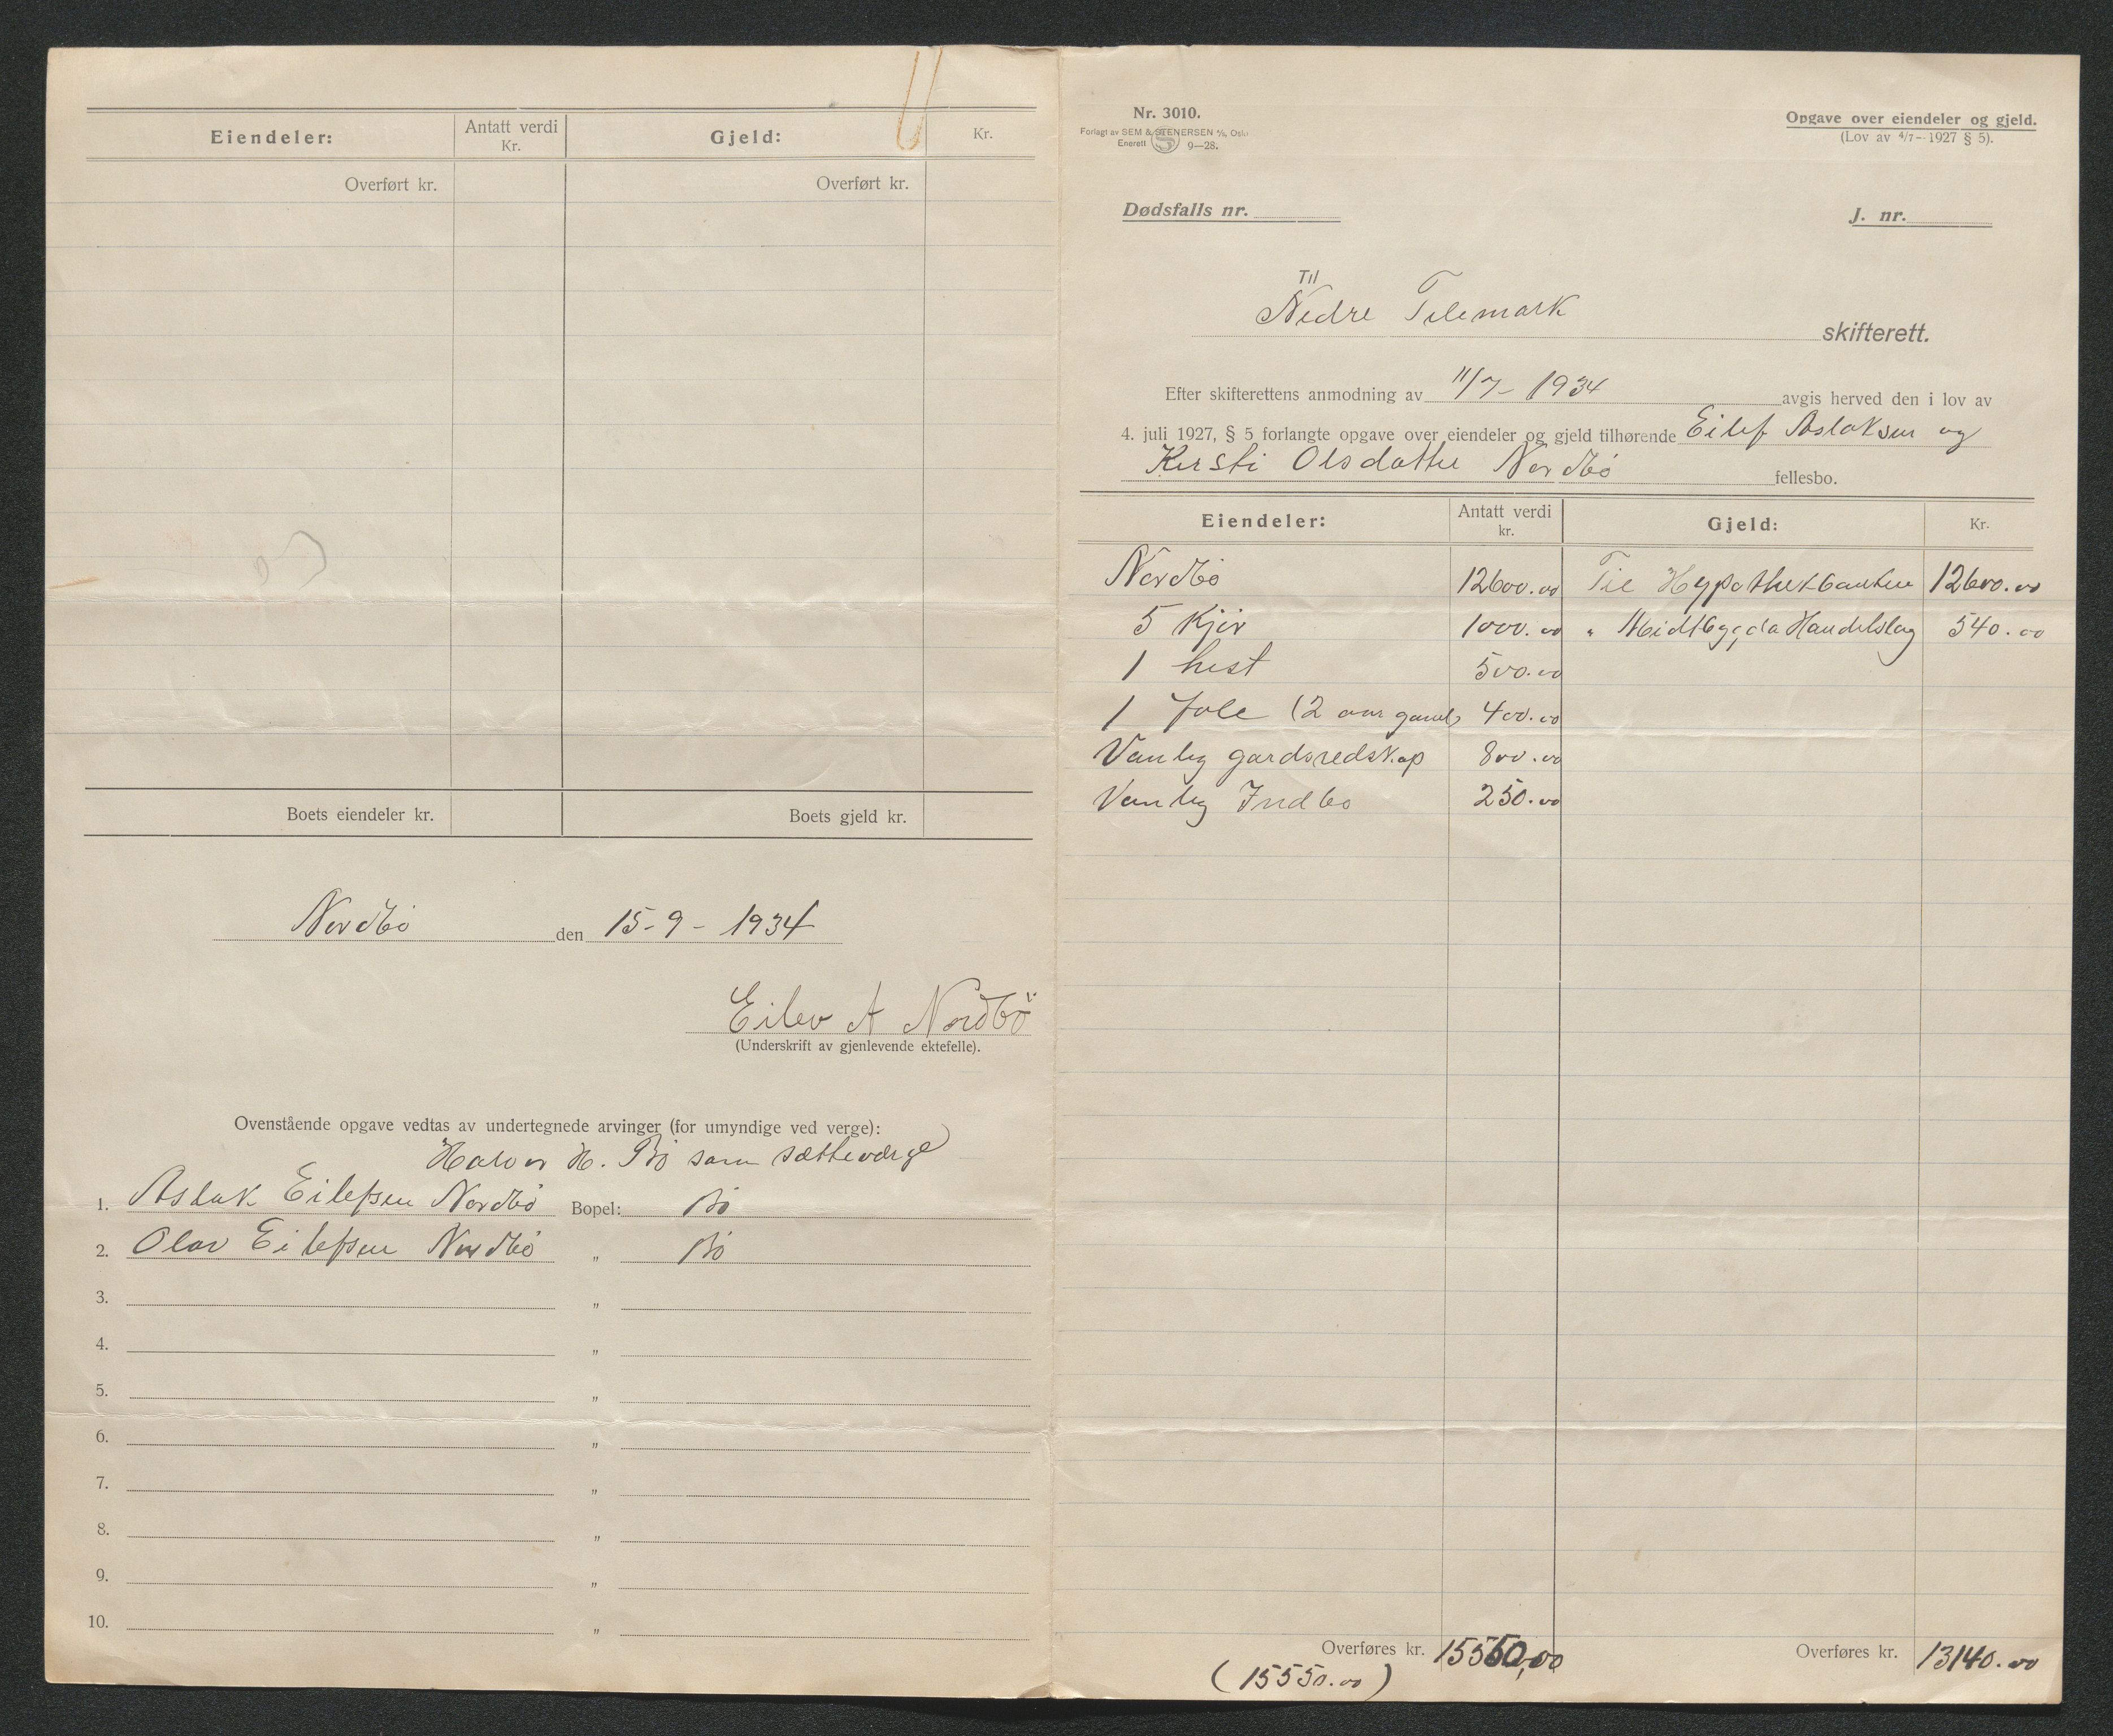 Eiendeler: Antatt verdi Kr. Gjeld: Kr.
Overført kr. Overført kr.
Boets eiendeler kr. Boets gjeld kr.
Nordbø den 15-9-1934
Eilev A Nordbö
(Underskrift av gjenlevende ektefelle).
Ovenstående opgave vedtas av undertegnede arvinger (for umyndige ved verge):
Halvor H. Bø som sætteværge
1. Aslak Eilefsen Nordbø Bopel: Bø
2. Olav Eilefsen Nordbø " Bø
3. "
4. "
5. "
6. "
7. "
8. "
9. "
10. "
Nr. 3010.
Forlagt av SEM & STENERSEN A/S, Oslo
Enerett 9—28.
Opgave over eiendeler og gjeld.
(Lov av 4/7- 1927 § 5).
Dødsfalls nr. J. nr.
Til
Nedre Telemark skifterett.
Efter skifterettens anmodning av 11/7-1934 avgis herved den i lov av
4. juli 1927, § 5 forlangte opgave over eiendeler og gjeld tilhørende Eilef Aslaksen og
Kersti Olsdatter Nordbø fellesbo.
Eiendeler: Antatt verdi kr. Gjeld: Kr.
Nordbø 12600.00 Til Hypothekbanken 12600.00
5 Kjør 1000.00 " Midtbygda Handelslag 540.00
1 hest 500.00
1 Fole (2 aar gamel) 400.00
Vanlig gardsredskap 800.00
Vanlig Indbo 250.00
Overføres kr. 15550,00 Overføres kr. 13140.00
(15550.00)